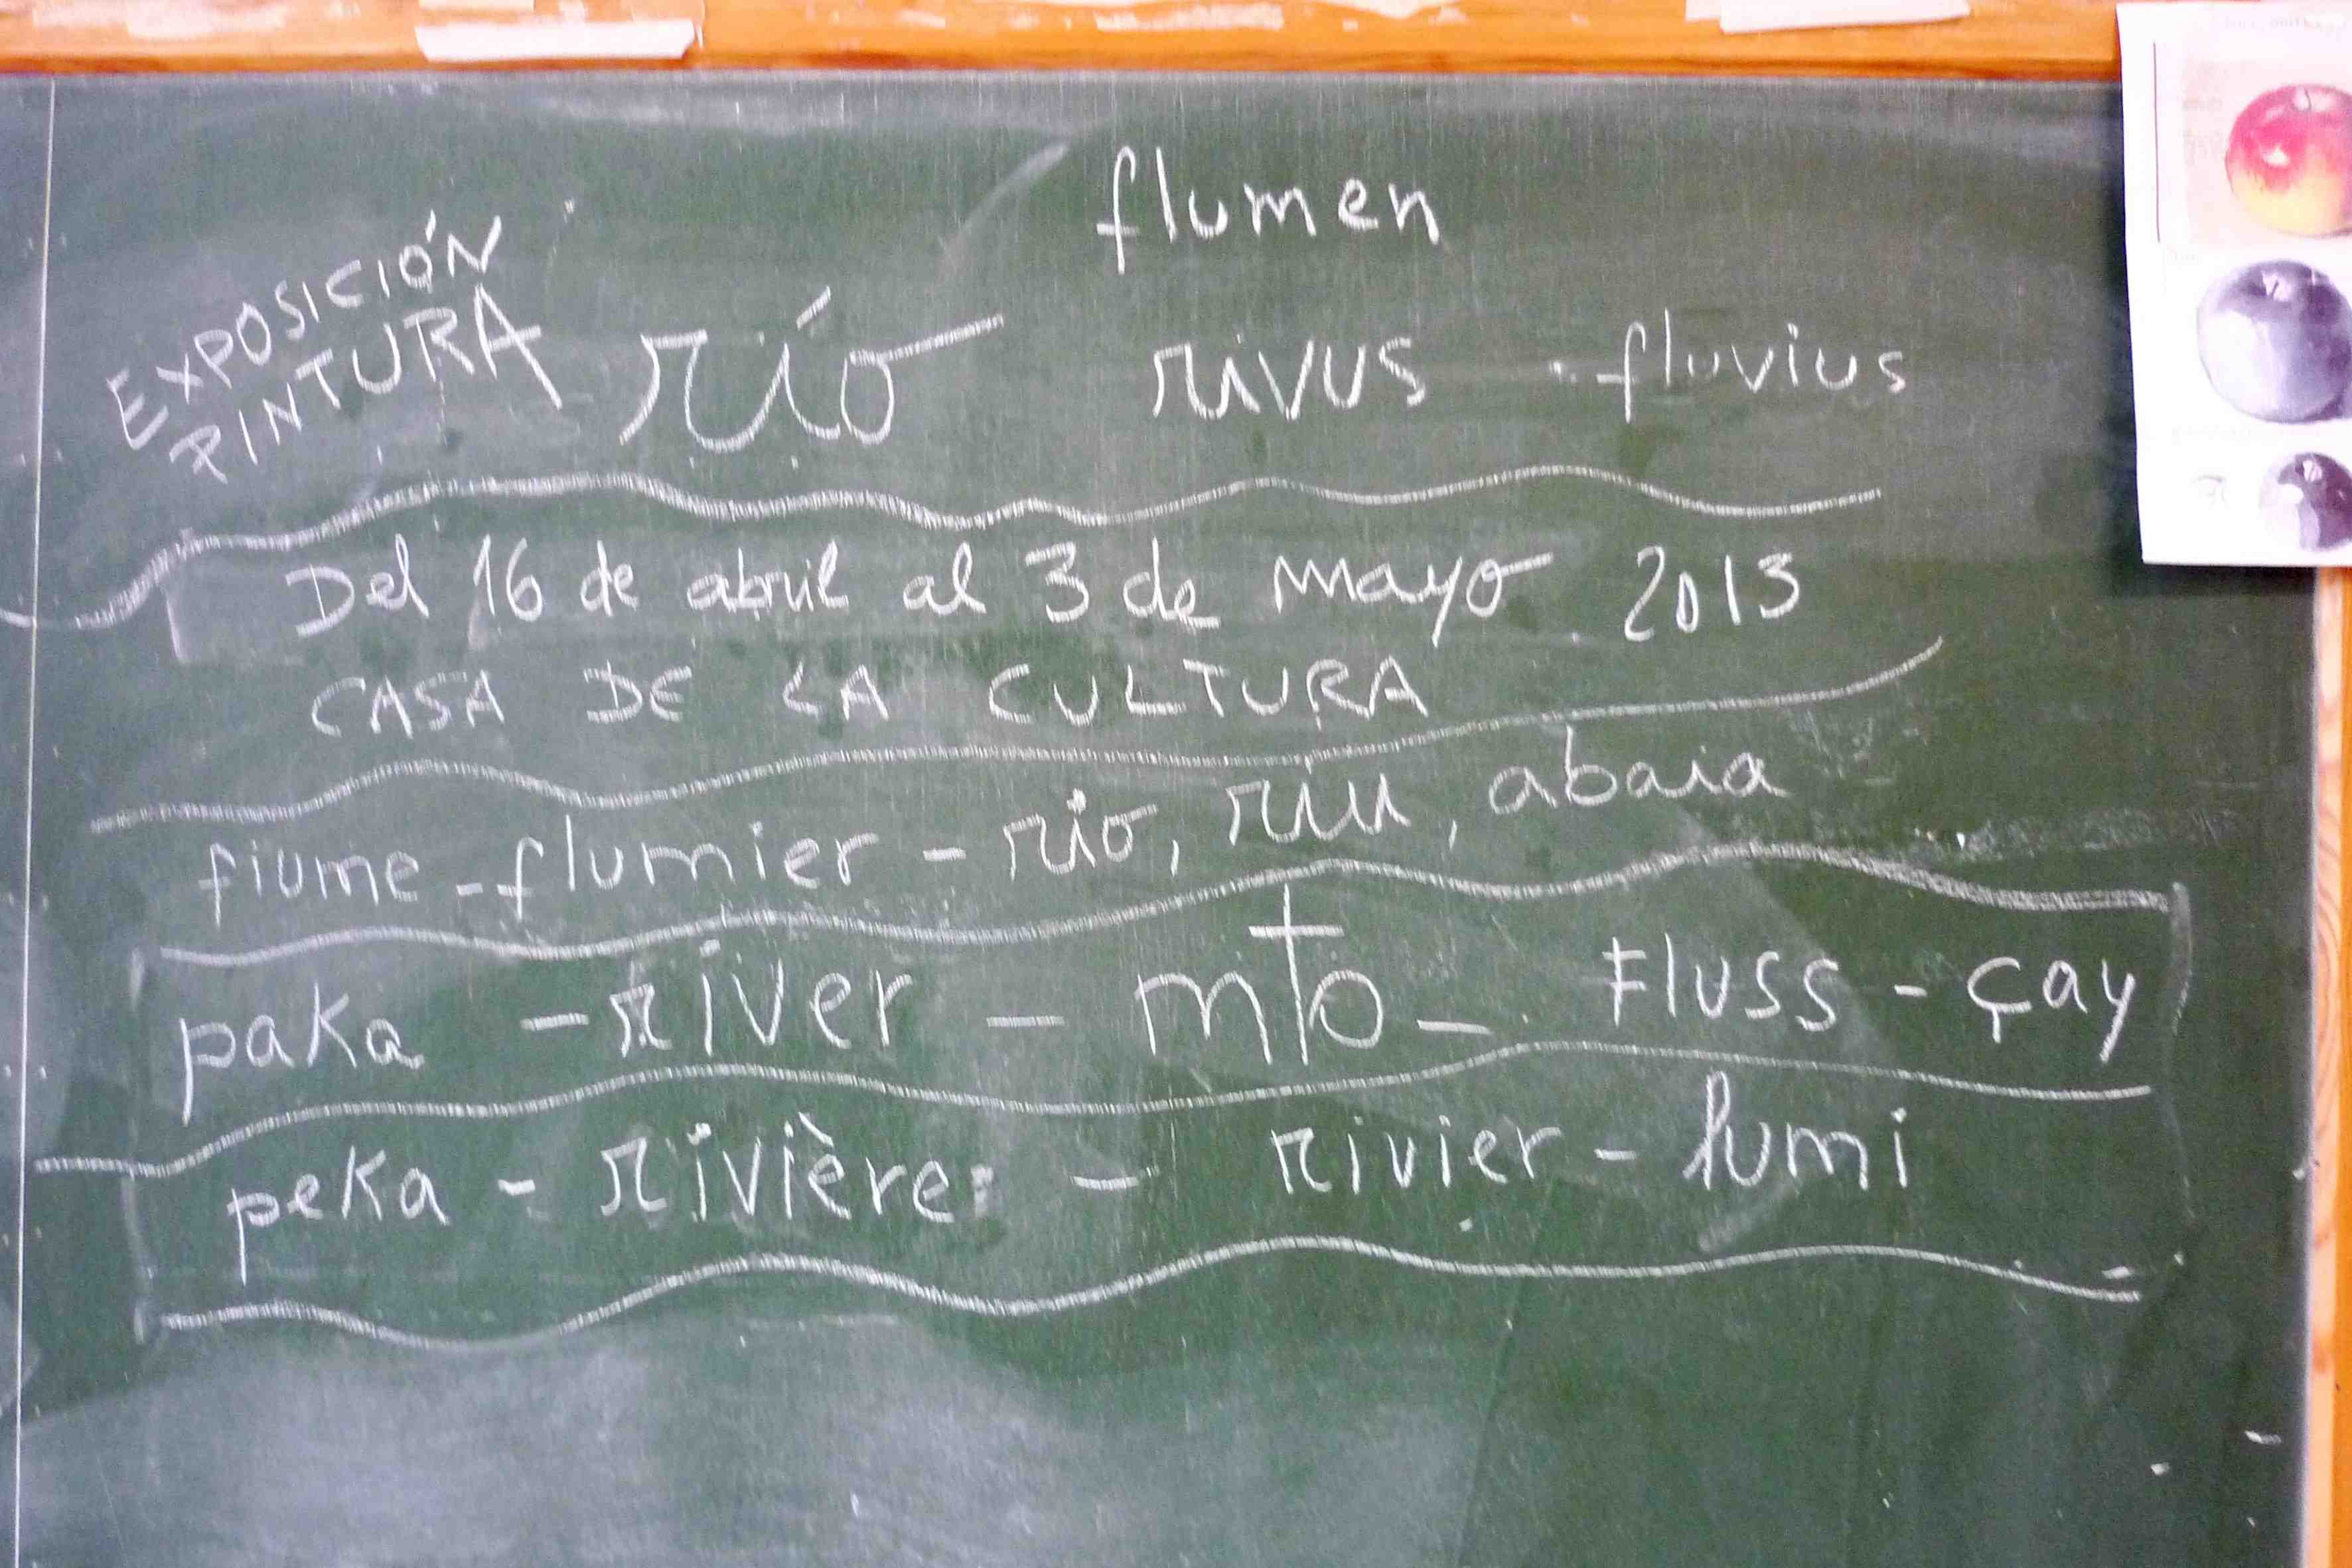 flumen
EXPOSICIÓN
PINTURA
río rivus - fluvius
Del 16 de abril al 3 de mayo 2013
CASA DE LA CULTURA
fiume - flumier - río, riu, abaia
paka - river - mto - Fluss - çay
peka - rivière - rivier - lumi